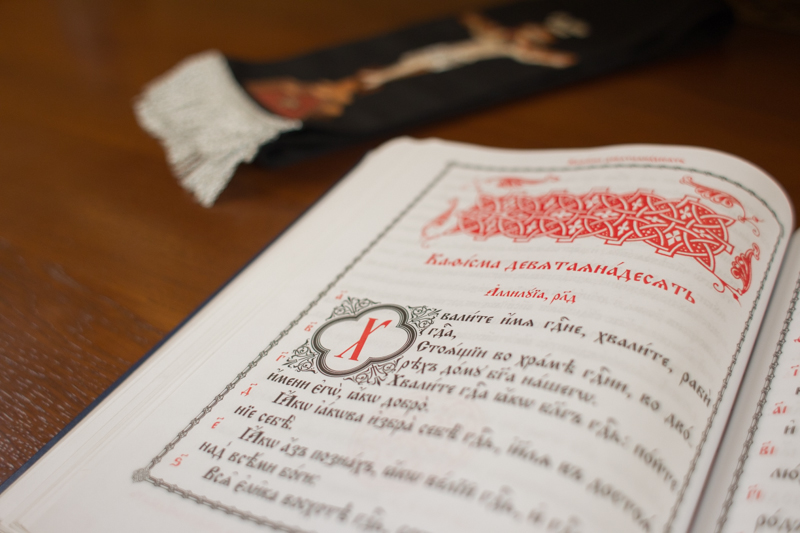 Каѳі́сма девѧтаѧна́десѧть
А҆ллилꙋ́їа, р҃лд
Хвали́те и҆́мѧ гдⷭ҇не, хвали́те, раби̑
гдⷭ҇а,
Стоѧ́щїи во хра́мѣ гдⷭ҇ни, во дво́-
рѣхъ до́мꙋ бг҃а на́шегѡ.
Хвали́те гдⷭ҇а ꙗ҆́кѡ бл҃гъ гдⷭ҇ь: по́йте
и҆́мени є҆гѡ̀, ꙗ҆́кѡ добро̀.
Ꙗ҆́кѡ і҆а́кѡва и҆збра̀ себѣ̀ гдⷭ҇ь, і҆и҃лѧ въ достоѧ́-
нїе себѣ̀.
Ꙗ҆́кѡ а҆́зъ позна́хъ, ꙗ҆́кѡ ве́лїй гдⷭ҇ь, и҆ гдⷭ҇ь
над̾ всѣ́ми бо́ги:
Всѧ̑ є҆ли̑ка восхотѣ̀ гдⷭ҇ь,